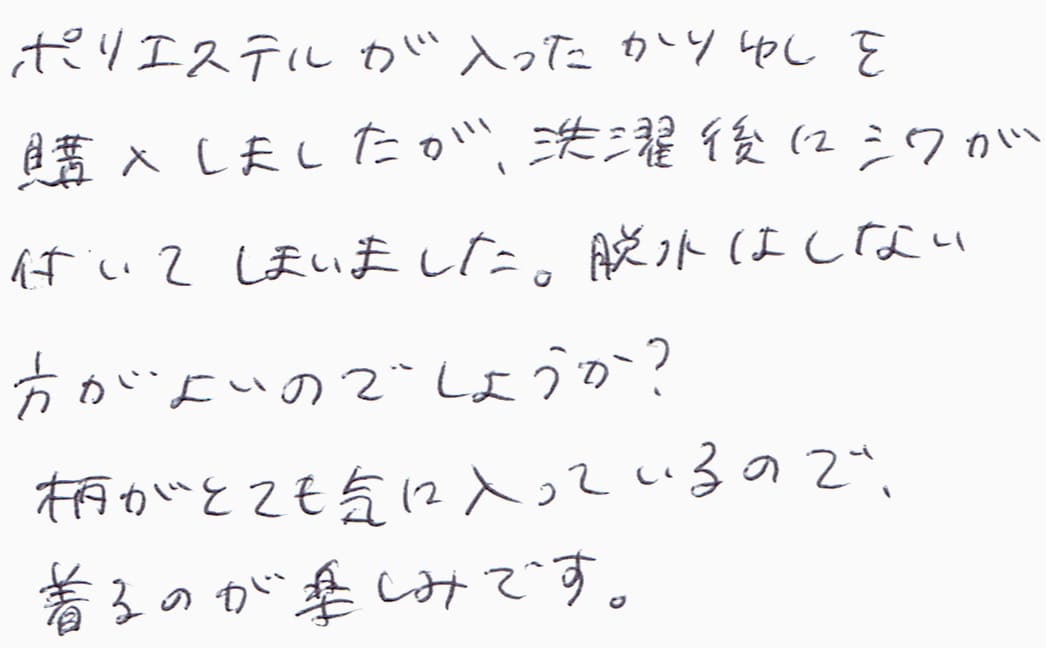 ポリエステルが入ったかりゆしを
購入しましたが、洗濯後にシワが
付いてしまいました。脱水はしない
方がよいのでしょうか?
柄がとても気に入っているので、
着るのが楽しみです。